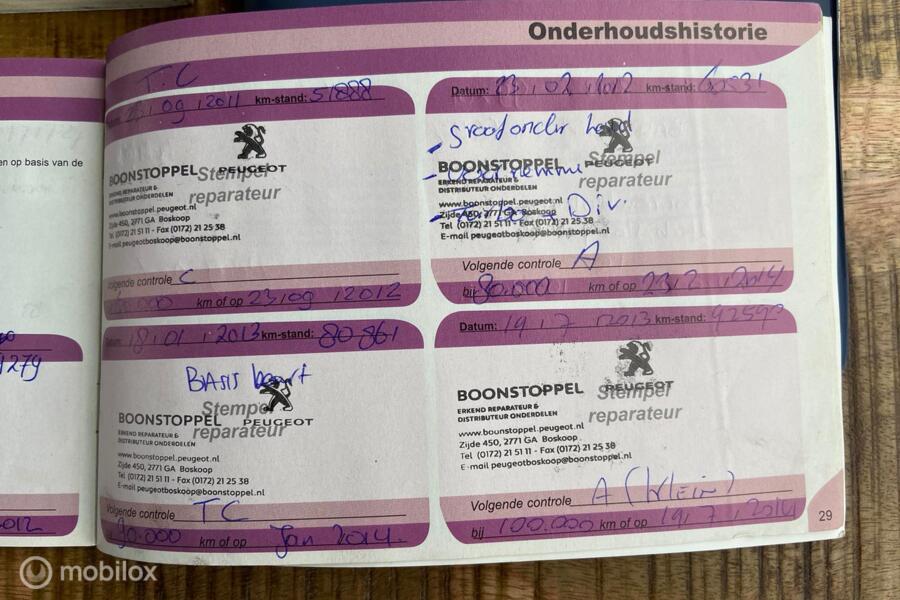 Onderhoudshistorie
en op basis van de
1279
2012
T.C
09 2011 km-stand: 51888
BOONSTOPPEL PEUGEOT
Stempel
ERKEND REPARATEUR &
DISTRIBUTEUR ONDERDELEN
reparateur
www.boonstoppel.peugeot.nl
Zijde 450, 2771 GA Boskoop
Tel (0172) 21 51 11 - Fax (0172) 21 25 38
E-mail peugeotboskoop@boonstoppel.nl
Volgende controle C
km of op 23 09 2012
Datum: 23 02 2012 km-stand:
- Groot onder houd
BOONSTOPPEL PEUGEOT
Stempel
ERKEND REPARATEUR &
DISTRIBUTEUR ONDERDELEN
reparateur
www.boonstoppel.peugeot.nl
Zijde 450, 2771 GA Boskoop
- Div.
Tel (0172) 21 51 11 - Fax (0172) 21 25 38
E-mail peugeotboskoop@boonstoppel.nl
Volgende controle A
bij 80.000 km of op 23 2 2014
Datum: 18 01 2013 km-stand: 80861
BASIS beurt
Stempel
BOONSTOPPEL PEUGEOT
ERKEND REPARATEUR &
DISTRIBUTEUR ONDERDELEN
reparateur
www.boonstoppel.peugeot.nl
Zijde 450, 2771 GA Boskoop
Tel (0172) 21 51 11 - Fax (0172) 21 25 38
E-mail peugeotboskoop@boonstoppel.nl
Volgende controle TC
90.000 km of op Jan 2014.
Datum: 19 7 2013 km-stand: 92593
BOONSTOPPEL PEUGEOT
Stempel
ERKEND REPARATEUR &
DISTRIBUTEUR ONDERDELEN
reparateur
www.boonstoppel.peugeot.nl
Zijde 450, 2771 GA Boskoop
Tel (0172) 21 51 11 - Fax (0172) 21 25 38
E-mail peugeotboskoop@boonstoppel.nl
Volgende controle A (klein)
bij 100.000 km of op 19 7 2014
29
mobilox